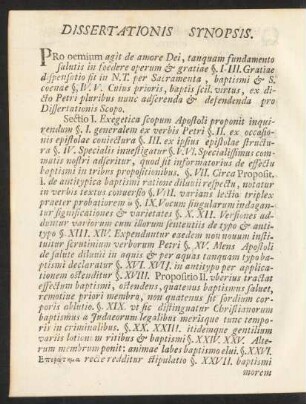 DISSERTATIONIS SYNOPSIS.
PRo oemium agit de amore Dei, tanquam fundamento
salutis in foedere operum & gratiae §. I-III. Gratiae
dispensatio fit in N.T. per Sacramenta, baptismi & S.
coenae §. IV. V. Cuius prioris, baptis scil. virtus, ex di-
cto Petri pluribus nunc adserenda & defendenda pro
Dissertationis Scopo.
Sectio I. Exegetica scopum Apostoli proponit inqui-
rendum §. I. generalem ex verbis Petri §. II. ex occasio-
nis epistolae coniectura §. III. ex ipsius epistolae structu-
ra §. IV. Specialis investigatur §. V. VI. Specialissimus com-
matis nostri adseritur, quod sit informatorius de effectu
baptismi in tribus propositionibus. §. VII. Circa Proposit.
I. de antitypica baptismi ratione diluvii respectu, notatur
in verbis textus connexio §. VIII. varians lectio triplex
praeter probatiorem ὃ §. IX. Vocum singularum indagan-
tur significationes & varietates §. X. XII. Versiones ad-
duntur variorum cum illorum sententiis de typo & anti-
typo §. XIII. XIV. Expenduntur eaedem nonnullorum insti-
tuitur scrutinium verborum Petri §. XV. Mens Apostoli
de salute diluvii in aquis & per aquas tanquam typo ba-
ptismi declaratur §. XVI. XVII. in antitypo per applica-
tionem ostenditur §. XVIII. Propositio II. uberius tractat
effectum baptismi, ostendens, quatenus baptismus salvet,
remotive priori membro, non quatenus sit sordium cor-
poris ablutio. §. XIX. ut sic distinguatur Christianorum
baptismus a Judaeorum legalibus merisque tunc tempo-
ris in criminalibus. §. XX. XXIII. itidemque gentilium
variis lotionum ritibus & baptismi §. XXIV. XXV. Alte-
rum membrum ponit: animae labes baptismo elui. §. XXVI.
Ἐπερώτημα recte redditur stipulatio §. XXVII. baptismi
morem